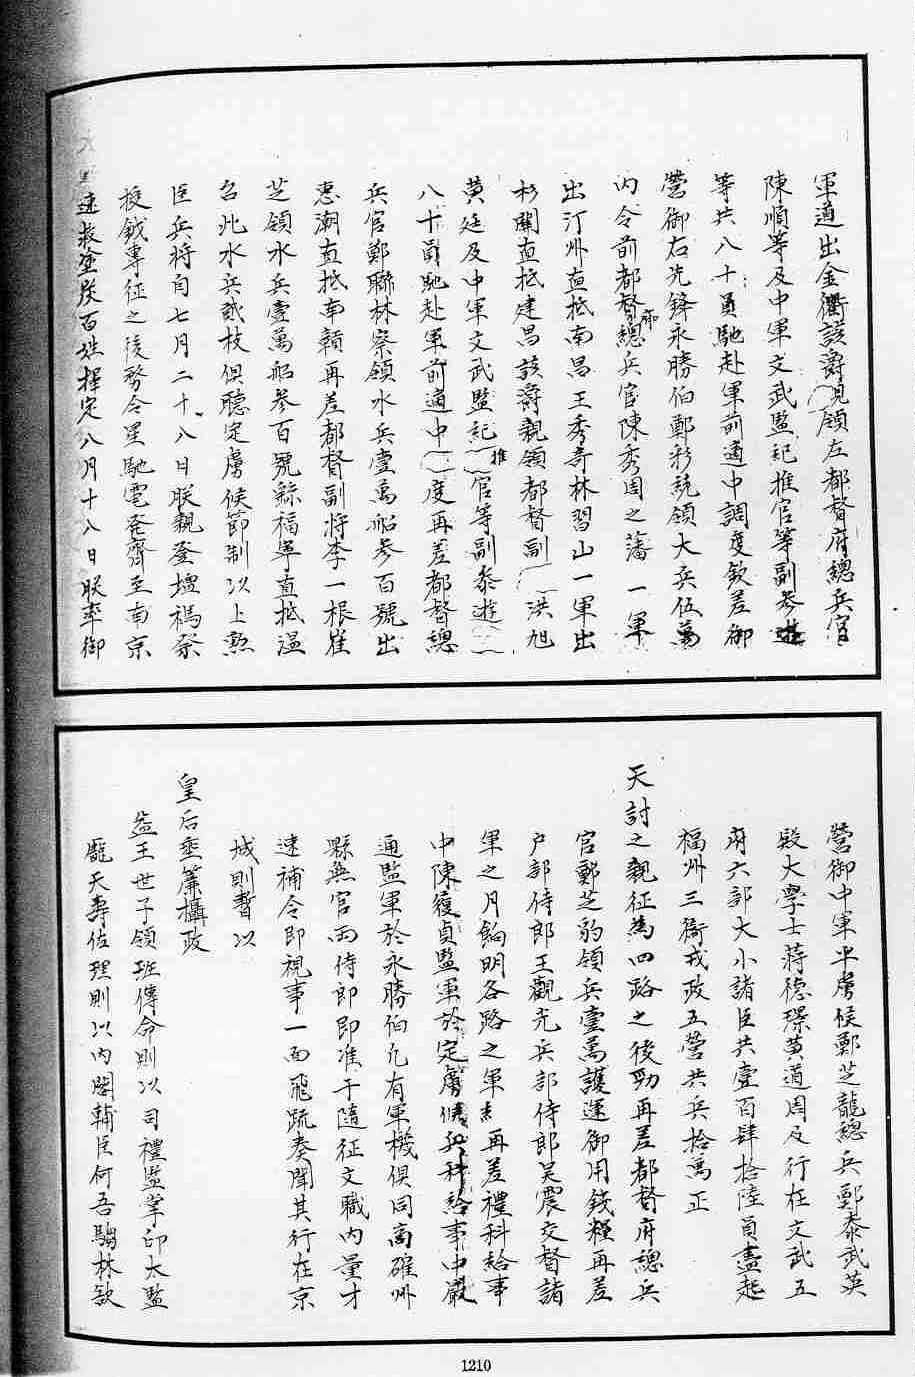 軍適出金衢該爵見領左都督府總兵官
陳順等及中軍文武監記推官等副參遊
等共八十員馳赴軍前適中調度欽差御
營御右先鋒永勝伯鄭彩統領大兵伍萬
內令前都督府總兵官陳秀周之藩一軍
出汀州直抵南昌王秀奇林習山一軍出
杉關直抵建昌該爵親領都督副洪旭
黃廷及中軍文武監紀推官等副參遊
八十員馳赴軍前適中度再差都督總
兵官鄭聯林察領水兵壹萬船參百號出
惠潮直抵南贛再差都督副將李一根崔
芝領水兵壹萬船參百號繇福寧直抵溫
台此水兵貳枝俱聽定虜侯節制以上勲
臣兵將自七月二十八日朕親登壇禡祭
授鉞專征之後務令星馳電發齊至南京
速救塗炭百姓擇定八月十八日朕率御
營御中軍平虜侯鄭芝龍總兵鄭泰武英
殿大學士蔣德璟黃道周及行在文武五
府六部大小諸臣共壹百肆拾陸員盡起
福州三衛戎政五營共兵拾萬正
天討之親征為四路之後勁再差都督府總兵
官鄭芝豹領兵壹萬護運御用錢糧再差
戶部侍郎王觀光兵部侍郎吳震交督諸
軍之月餉明各路之軍再差禮科給事
中陳履貞監軍於定虜侯兵科給事中嚴
通監軍於永勝伯凡有軍機俱同商確州
縣無官兩侍郎即准于隨征文職內量才
速補令即視事一面飛疏奏聞其行在京
城則暫以
皇后垂簾攝政
益王世子領班傳命則以司禮監掌印太監
龐天壽佐理則以內閣輔臣何吾騶林欽
1210